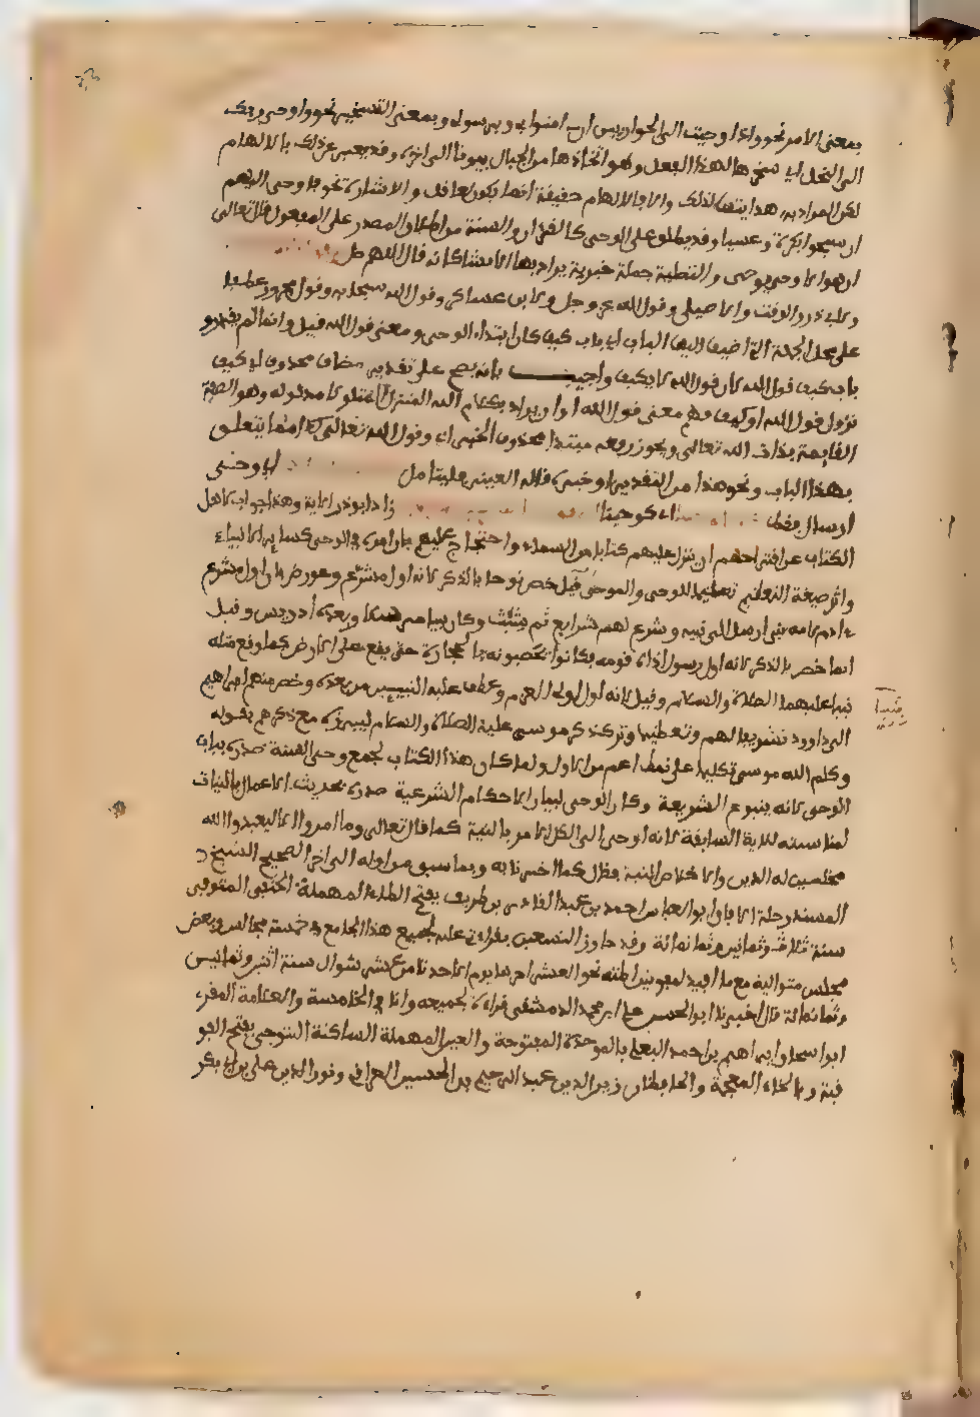 بمعنى الامر نحو واذا اوحيت الى الحواريين ان امنوا بي وبرسولي وبمعنى التسخير نحو واوحى ربك
الى النحل اي سخرها لهذا الفعل وهو اتخاذها من الجبال بيوتا الى اخره وقد يعبر عن ذلك بالالهام
لكن المراد به هدايتها لذلك والا فالالهام حقيقة انما يكون لعاقل والاشارة نحو فاوحى اليهم
ان سبحوا بكرة وعشيا وقد يطلق على الوحى كالقران والسنة من اطلاق المصدر على المفعول قال تعالى
ان هو الا وحي يوحى والتصلية جملة خبرية يراد بها الانشا كانه قال اللهم صل
ولابي ذر والوقت والاصيلي وقول الله عز وجل ولابن عساكر وقول الله سبحانه وقول مجرور عطفا
على محل الجملة التي اضيف اليها الباب اي باب كيف كان ابتداء الوحى ومعنى قول الله قيل وانما لم يقدروا
باب كيف قول الله لان قول الله لا يكيف واجيب بانه يصح على تقدير مضاف محذوف اي كيف
نزول قول الله او كيف فهم معنى قول الله او ان يراد بكلام الله المنزل المتلو لا مدلوله وهو الصفة
القايمة بذات الله تعالى ويجوز رفعه مبتدا محذوف الخبر اي وقول الله تعالى كذا مما يتعلق
بهذا الباب ونحو هذا من التقدير او خبره قاله العيني فليتامل اي وحى
ارسال فقط كوحينا زاد ابوذر الاية وهذا جواب لاهل
الكتاب عن اقتراحهم ان ينزل عليهم كتابا من السماء واحتجاج عليهم بان امره في الوحى كساير الانبياء
واثر صيغة التعظيم تعظيما للوحى والموحى قيل خص نوحا بالذكر لانه اول مشرع وعورض بان اول مشرع
ءادم لانه نبى ارسل الى بنيه وشرع لهم شرايع ثم شيث وكان نبيا مرسلا وبعده ادريس وقيل
انما خص بالذكر لانه اول رسول اذاه قومه فكانوا يحصبونه بالحجارة حتى يقع على الارض كما وقع مثله
نبينا عليهما الصلاة والسلام وقيل لانه اول اولى العزم وعطف عليه النبيين من بعده وخص منهم ابراهيم
الى داوود تشريفا لهم وتعظيما وترك ذكر موسى عليه الصلاة والسلام ليبرزه مع ذكرهم بقوله
وكلم الله موسى تكليما على نمط اعم من الاول ولما كان هذا الكتاب لجمع وحى السنة صدره بباب
الوحى لانه ينبوع الشريعة وكان الوحى لبيان الاحكام الشرعية صدره بحديث الاعمال بالنيات
لمناسبته للاية السابقة لانه اوحى الى الكل الامر بالنية كما قال تعالى وما امروا الا ليعبدوا الله
مخلصين له الدين والاخلاص النية فقال كما اخبرنا به وبما سبق من اوله الى اخر الصحيح الشيخ
المسند رحلة الافاق ابو العباس احمد بن عبد القادر بن طريف بفتح الطاء المهملة الحنفي المتوفى
سنة ثلاث وثمانين وثمانمائة وقد جاوز التسعين بقراءتي عليه لجميع هذا الجامع في خمسة مجالس وبعض
مجلس متوالية مع ما اعيد لمفوتين اظنه نحو العشر اخرها يوم الاحد ثامن عشرى شوال سنة اثنين وثمانين
وثمانمائة قال اخبرنا ابو الحسن علي ابن محمد الدمشقي قراءة لجميعه وانا في الخامسة والعلامة المقرئ
ابو اسحاق ابراهيم بن احمد البعلى بالموحدة المفتوحة والعين المهملة الساكنة التنوخى بفتح الفو
قية وبالخاء المعجمة والحافظان زين الدين عبد الرحيم بن الحسين العراقي ونور الدين علي بن ابي بكر